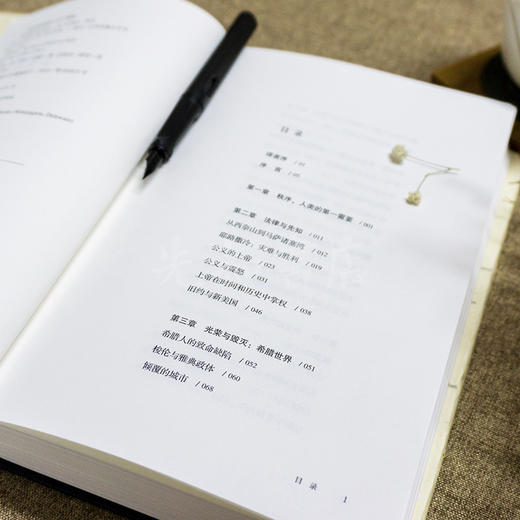 目 录
译者序 / 01
序 言 / 05
第一章 秩序，人类的第一需要 / 001
第二章 法律与先知 / 011
从西奈山到马萨诸塞湾 / 012
耶路撒冷：灾难与胜利 / 019
公义的上帝 / 023
公义与震怒 / 031
上帝在时间和历史中掌权 / 038
旧约与新美国 / 046
第三章 光荣与毁灭：希腊世界 / 051
希腊人的致命缺陷 / 052
梭伦与雅典政体 / 060
倾覆的城市 / 068
目 录 1